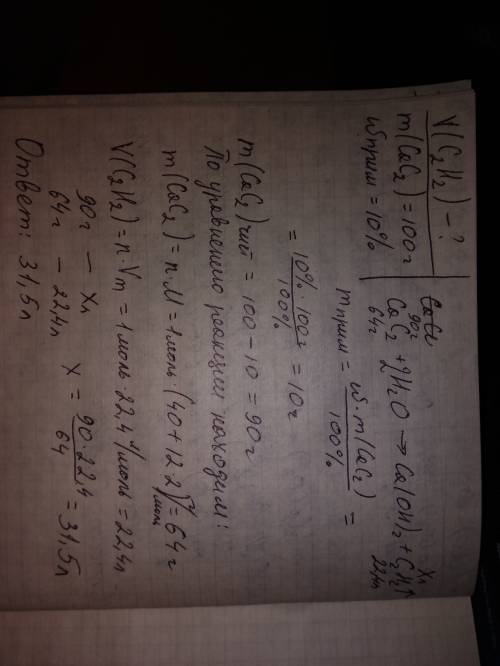 V(C₂H₂) - ?
m(CaC₂) = 100г
ω прим = 10%
90г xл
CaC₂ + 2H₂O → Ca(OH)₂ + C₂H₂↑
64г 22,4л
m прим = ω · m(CaC₂) / 100% =
= 10% · 100г / 100% = 10г
m(CaC₂)чист = 100 - 10 = 90г
По уравнению реакции находим:
m(CaC₂) = n · M = 1моль · (40 + 12·2) г/моль = 64г
V(C₂H₂) = n · Vm = 1моль · 22,4 л/моль = 22,4л
90г - xл x = 90 · 22,4 / 64 = 31,5л
64г - 22,4л
Ответ: 31,5л